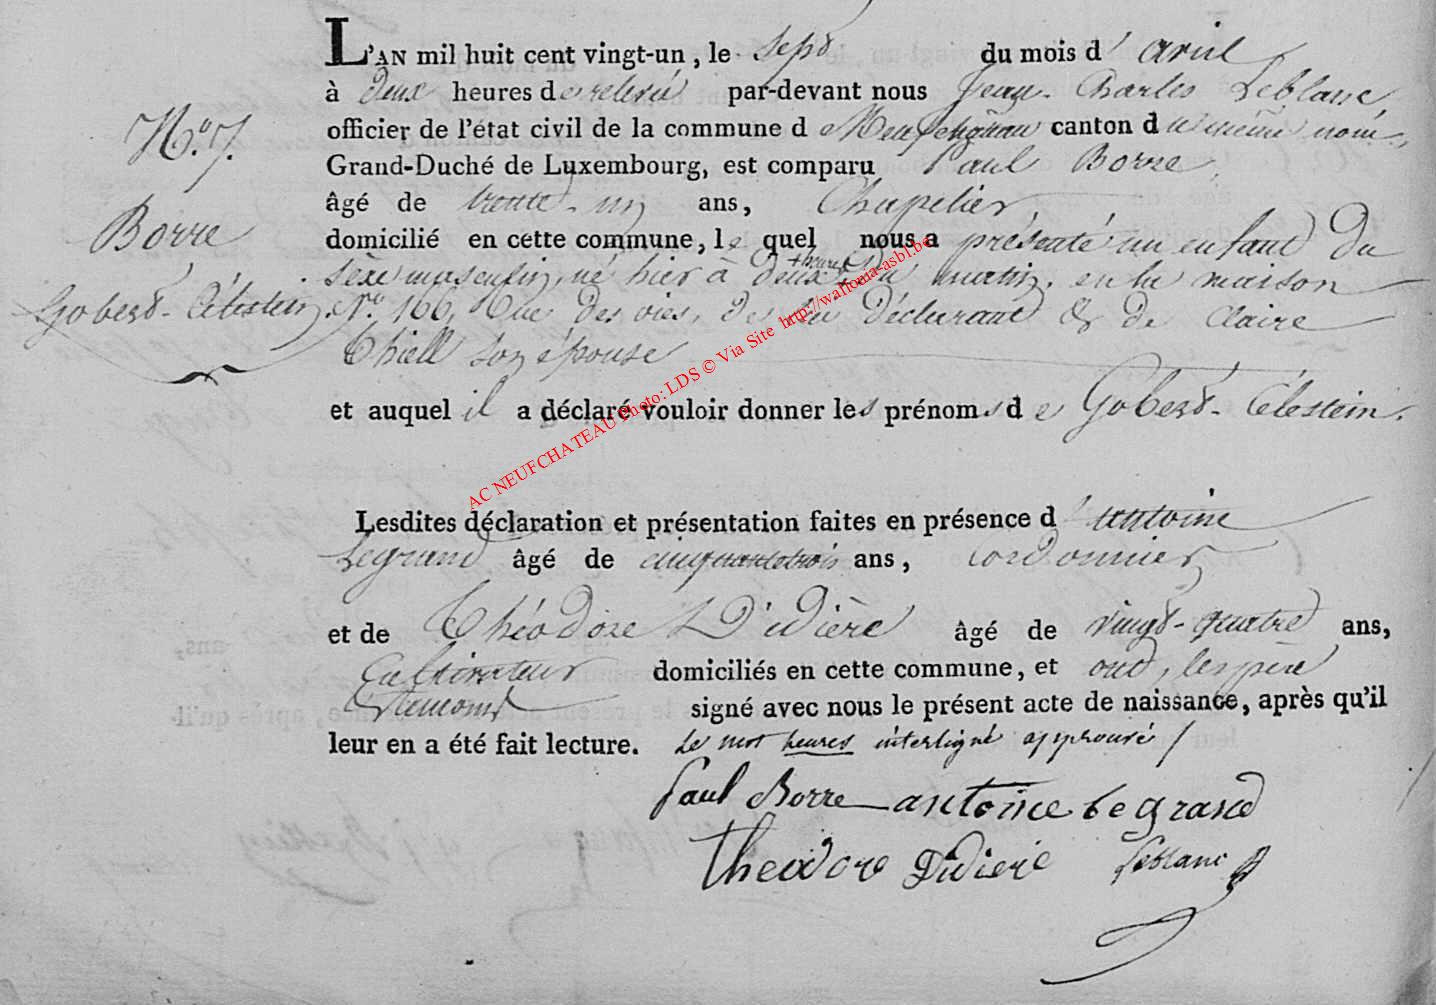 L'AN mil huit cent vingt-un, le sept du mois d'avril
à deux heures de relevée par-devant nous Jean Charles Leblanc,
officier de l'état civil de la commune de Neufchâteau canton du même nom,
N.º 7. Grand-Duché de Luxembourg, est comparu Paul Borre,
âgé de trente-un ans, Chapelier
Borre domicilié en cette commune, lequel nous a présenté un enfant du
sèxe masculin, né hier à deux + heures du matin, en la maison
Gobert-Célestin. N.º 166, Rue des oies, de lui Déclarant & de Claire
Thiell son épouse
et auquel il a déclaré vouloir donner les prénoms de Gobert-Célestin.
AC NEUFCHATEAU Photo: LDS © Via Site http://wallonia-asbl.be
Lesdites déclaration et présentation faites en présence d'Antoine
Legrand âgé de cinquante trois ans, Cordonnier
et de Théodore Didière âgé de vingt-quatre ans,
Cultivateur domiciliés en cette commune, et ont, les père
& témoins signé avec nous le présent acte de naissance, après qu'il
leur en a été fait lecture. Le mot heures interligné approuvé /
Paul Borre antoine le grand
theodore Didiere Leblanc